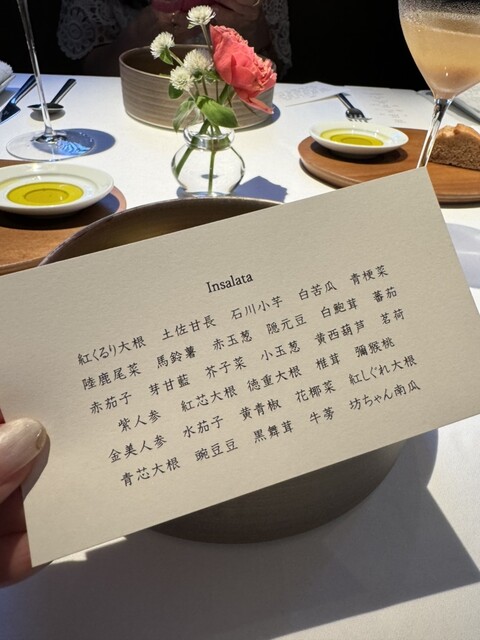 Insalata
紅くるり大根　土佐甘長　石川小芋　白苦瓜　青梗菜
陸鹿尾菜　馬鈴薯　赤玉葱　隠元豆　白鮑茸　蕃茄
赤茄子　芽甘藍　芥子菜　小玉葱　黄西葫芦　茗荷
紫人参　紅芯大根　徳重大根　椎茸　獼猴桃
金美人参　水茄子　黄青椒　花椰菜　紅しぐれ大根
青芯大根　豌豆豆　黒舞茸　牛蒡　坊ちゃん南瓜